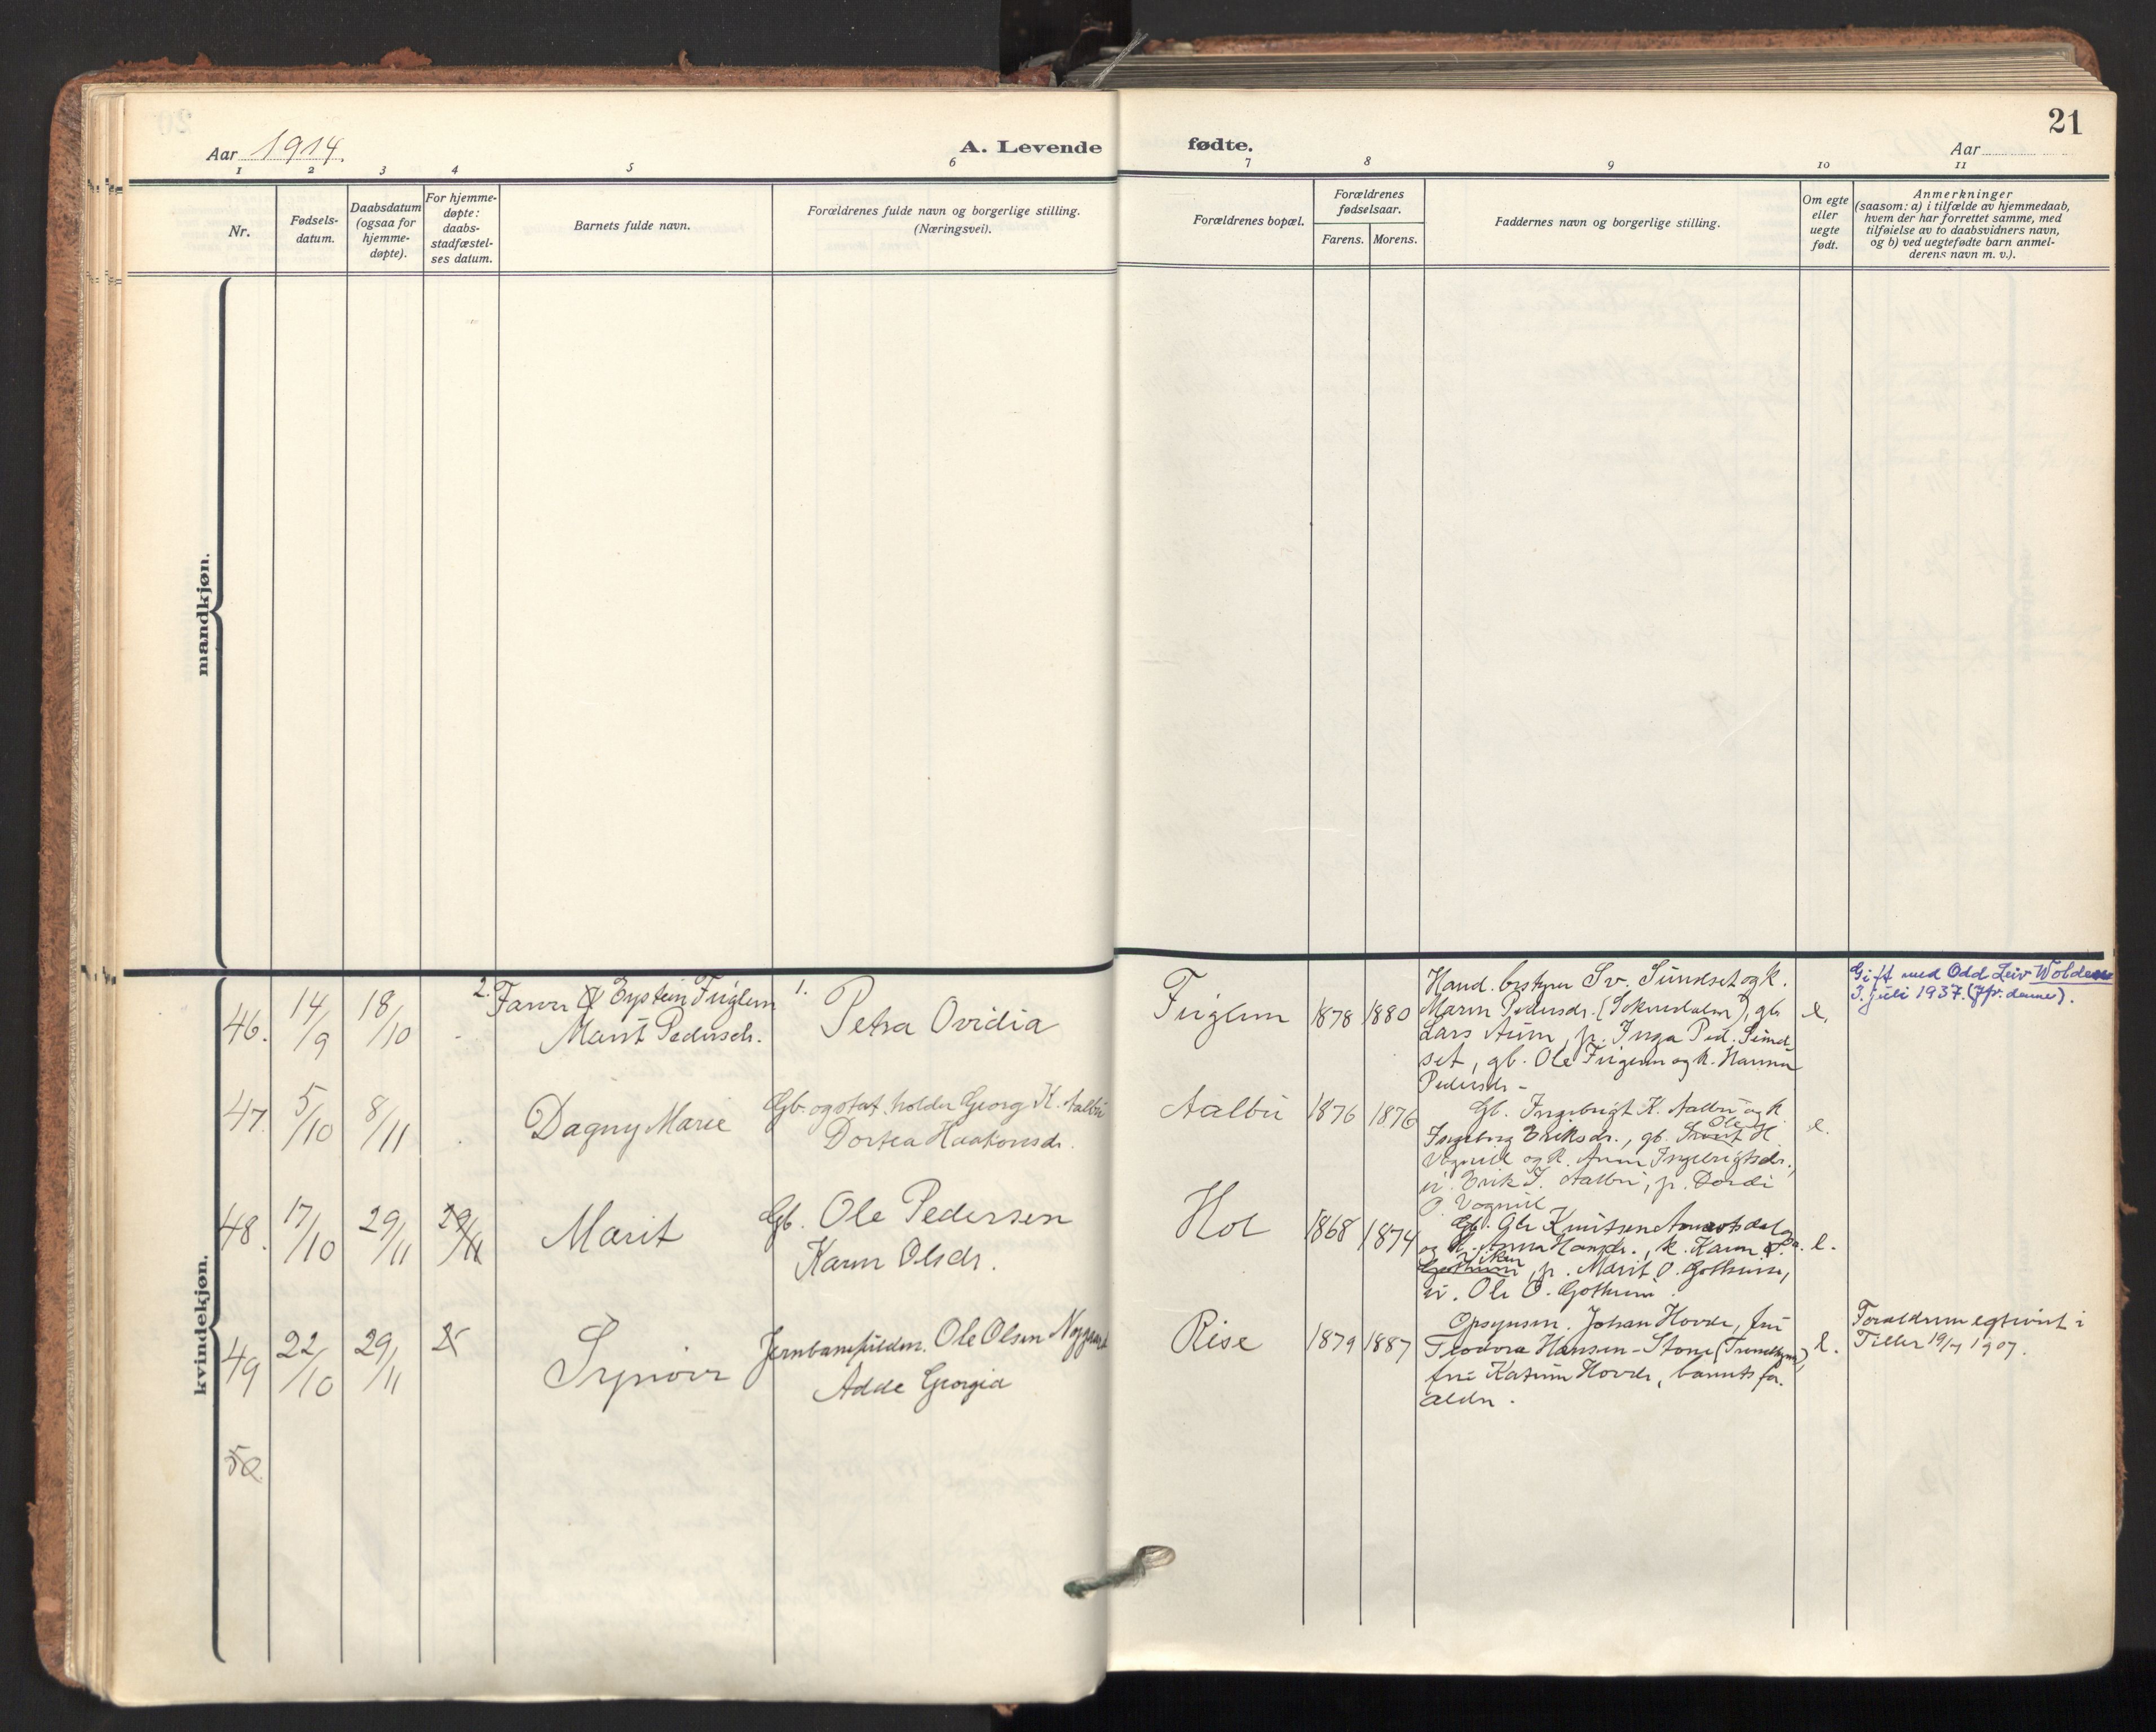 21
Aar 1914.
A. Levende
fødte.
Aar
1 2 3 4 5 6 7 8 9 10 11
Nr.
Fødsels-
datum.
Daabsdatum
(ogsaa for
hjemme-
døpte).
For hjemme-
døpte:
daabs-
stadfæstel-
ses datum.
Barnets fulde navn.
Forældrenes fulde navn og borgerlige stilling.
(Næringsvei).
Forældrenes bopæl.
Forældrenes
fødselsaar.
Farens.
Morens.
Faddernes navn og borgerlige stilling.
Om egte
eller
uegte
født.
Anmerkninger
(saasom: a) i tilfælde av hjemmedaab,
hvem der har forrettet samme, med
tilføielse av to daabsvidners navn,
og b) ved uegtefødte barn anmel-
derens navn m. v.).
mandkjøn.
kvindekjøn.
46. 14/9 18/10
2. Eystein Fuglem
Marit Pedersdr.
1. Petra Ovidia
Fuglem 1878 1880
Hand. bestyrer Sv. Sundset og k.
Maren Pedersdr. (Soknedalen), gb.
Lars Aune, p. Inga Ped. Sund-
set, gb. Ole Fuglem og k. Hanna
Pedersdr -
e.
Gift med Odd Leiv Wolden
3. juli 1937. (Jfr. denne).
47. 5/10 8/11
Dagny Marie
Gb. og stat. holder Georg K. Aalbu
Dortea Haakonsdr.
Aalbu 1876 1876
Gb. Ingebrigt K. Aalbu og k
Ingeborg Eriksdr., gb. Ole H
Vognill og k. Anne Ingebrigtsdr.,
u. Erik I. Aalbu, p. Dordi
O. Vognill
e.
48. 17/10 29/11 29/11
Marit
Gb. Ole Pedersen
Karen Olsdr.
Hol 1868 1874
Gb. Ole Knutsen
og k. Anna Hansdr., k. Karen
Viken, p. Marit O. Gothum,
u. Ole O. Gothum.
e.
49 22/10 29/11
Synøve
Ole Olsen Nyggaard
Adde Georgia
Rise 1879 1887
Opsynsm. Johan Hovde, fru
Teodora Hansen-Stone (Trondhjem),
fru Katrine Hovde, barnets for-
ældre.
e.
Forældrene egteviet i
Tiller 19/7 1907.
50.